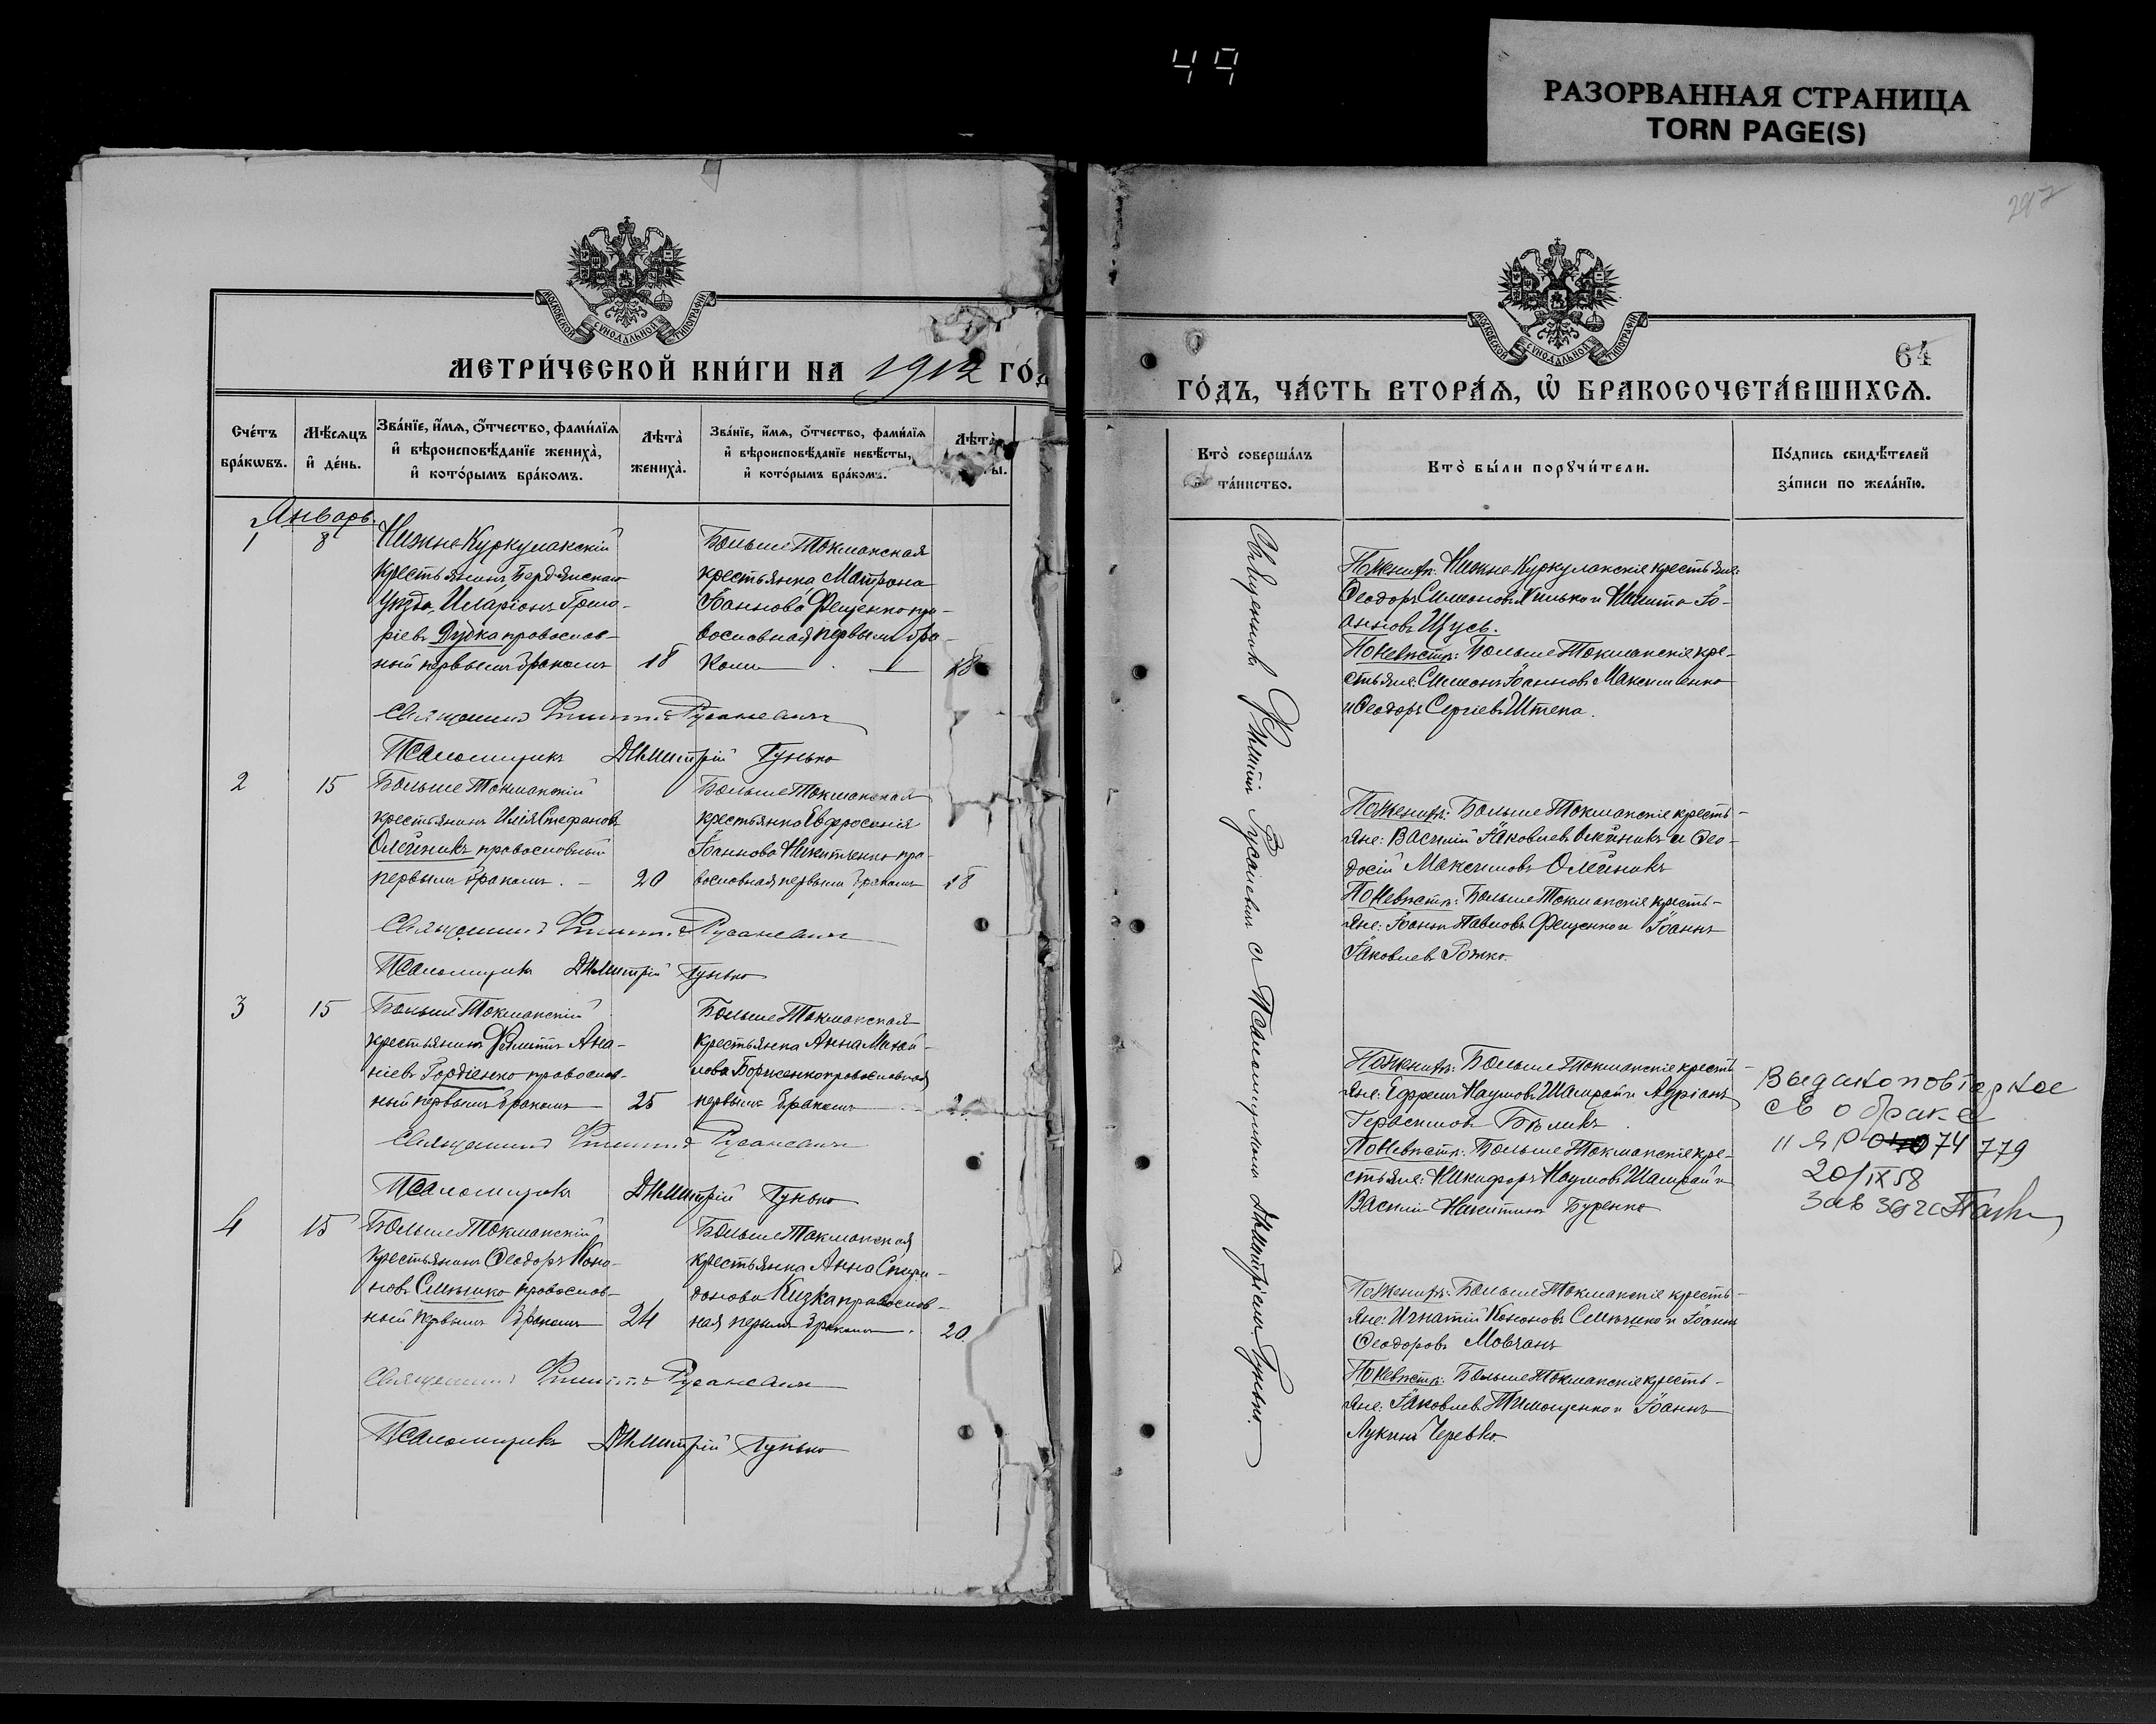 РАЗОРВАННАЯ СТРАНИЦА
TORN PAGE(S)
МОСКОВСКОЙ СѴНОДАЛЬНОЙ ТИПОГРАФІИ
МЕТРИ́ЧЕСКОЙ КНИ́ГИ НА 1912 ГО́Д
Сче́тъ бра́кѡвъ.
Мѣ́сяцъ и҆ де́нь.
Зва́нїе, и҆́мѧ, ѻ҆́тчество, фами́лїѧ и҆ вѣроисповѣ́данїе жениха̀, и҆ кото́рымъ бра́комъ.
Лѣта̀ жениха̀.
Зва́нїе, и҆́мѧ, ѻ҆́тчество, фами́лїѧ и҆ вѣроисповѣ́данїе невѣ́сты, и҆ кото́рымъ бра́комъ.
Лѣта̀
Январь.
1
8
Нижне-Куркулакскій
крестьянинъ, Бердянскаго
уѣзда, Иларіонъ Григо-
ріевъ Дудка православ-
ный первымъ бракомъ
18
Больше Токмакская
крестьянка Матрона
Іоаннова Фещенко пра-
вославная первымъ бра-
комъ
18
Священникъ Филиппъ Русаневичъ
Псаломщикъ Димитрій Гунько
2
15
Больше Токмакскій
крестьянинъ Илія Стефановъ
Олейникъ православный
первымъ бракомъ. –
20
Больше Токмакская
крестьянка Евфросинія
Іоаннова Никитенко пра-
вославная первымъ бракомъ
18
Священникъ Филиппъ Русаневичъ
Псаломщикъ Димитрій Гунько
3
15
Больше Токмакскій
крестьянинъ Филиппъ Ана-
ніевъ Гордіенко православ-
ный первымъ бракомъ
25
Больше Токмакская
крестьянка Анна Михай-
лова Борженко православная
первымъ бракомъ
Священникъ Филиппъ Русаневичъ
Псаломщикъ Димитрій Гунько
4
15
Больше Токмакскій
крестьянинъ Ѳеодоръ Коно-
новъ православ-
ный первымъ бракомъ
24
Больше Токмакская
крестьянка Анна Спири-
донова Кизка православ-
ная первымъ бракомъ.
20.
Священникъ Филиппъ Русаневичъ
Псаломщикъ Димитрій Гунько
МОСКОВСКОЙ СѴНОДАЛЬНОЙ ТИПОГРАФІИ
64
ГО́ДЪ, ЧА́СТЬ ВТОРА́Ѧ, Ѽ БРАКОСОЧЕТА́ВШИХСѦ.
Кто̀ соверша́лъ та́инство.
Кто̀ бы́ли порꙋчи́тели.
По́дпись свидѣ́телей за́писи по жела́нїю.
Священникъ Филиппъ Русаневичъ съ Псаломщикомъ Димитріемъ Гунько.
По женихѣ: Нижне-Куркулакскіе крестьяне:
Ѳеодоръ Симеоновъ и Никита Іо-
анновъ Щусь.
По невѣстѣ: Больше Токмакскіе кре-
стьяне: Симеонъ Іоанновъ Максименко
и Ѳеодоръ Сергіевъ Штепа.
По женихѣ: Больше Токмакскіе кресть-
яне: Василій Іаковлевъ Олейникъ и Ѳео-
досій Максимовъ Олейникъ
По невѣстѣ: Больше Токмакскіе кресть-
яне: Іоаннъ Павловъ Фещенко и Іоаннъ
Іаковлевъ Рожко.
По женихѣ: Больше Токмакскіе кресть-
яне: Ефремъ Наумовъ Шамрай и Адріанъ
Герасимовъ Бѣликъ.
По невѣстѣ: Больше Токмакскіе кре-
стьяне: Никифоръ Наумовъ Шамрай и
Василій Никитинъ Буренко
Выдано повторное
св о браке
II ЯР 074779
20/IX 58
Зав Загс
По женихѣ: Больше Токмакскіе кресть-
яне: Игнатій Кононовъ и Іоаннъ
Ѳеодоровъ Мовчанъ
По невѣстѣ: Больше Токмакскіе кресть-
яне: Іаковлевъ Тимощенко и Іоаннъ
Лукинъ Черевко.